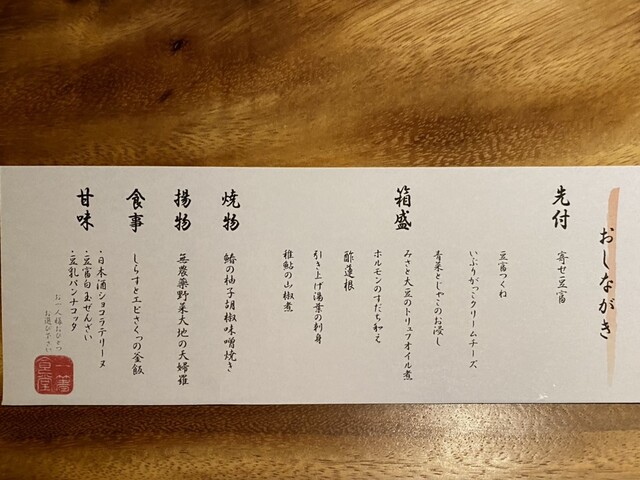 おしながき
先付
寄せ豆富
箱盛
豆富つくね
いぶりがっこクリームチーズ
青菜とじゃこのお浸し
みさと大豆のトリュフオイル煮
ホルモンのすだち和え
酢蓮根
引き上げ湯葉の刺身
稚鮎の山椒煮
焼物
鰆の柚子胡椒味噌焼き
揚物
無農薬野菜大地の天婦羅
食事
しらすとエビさくっの釜飯
甘味
・日本酒ショコラテリーヌ
・豆富白玉ぜんざい
・豆乳パンナコッタ
お一人様おひとつ
お選び下さい